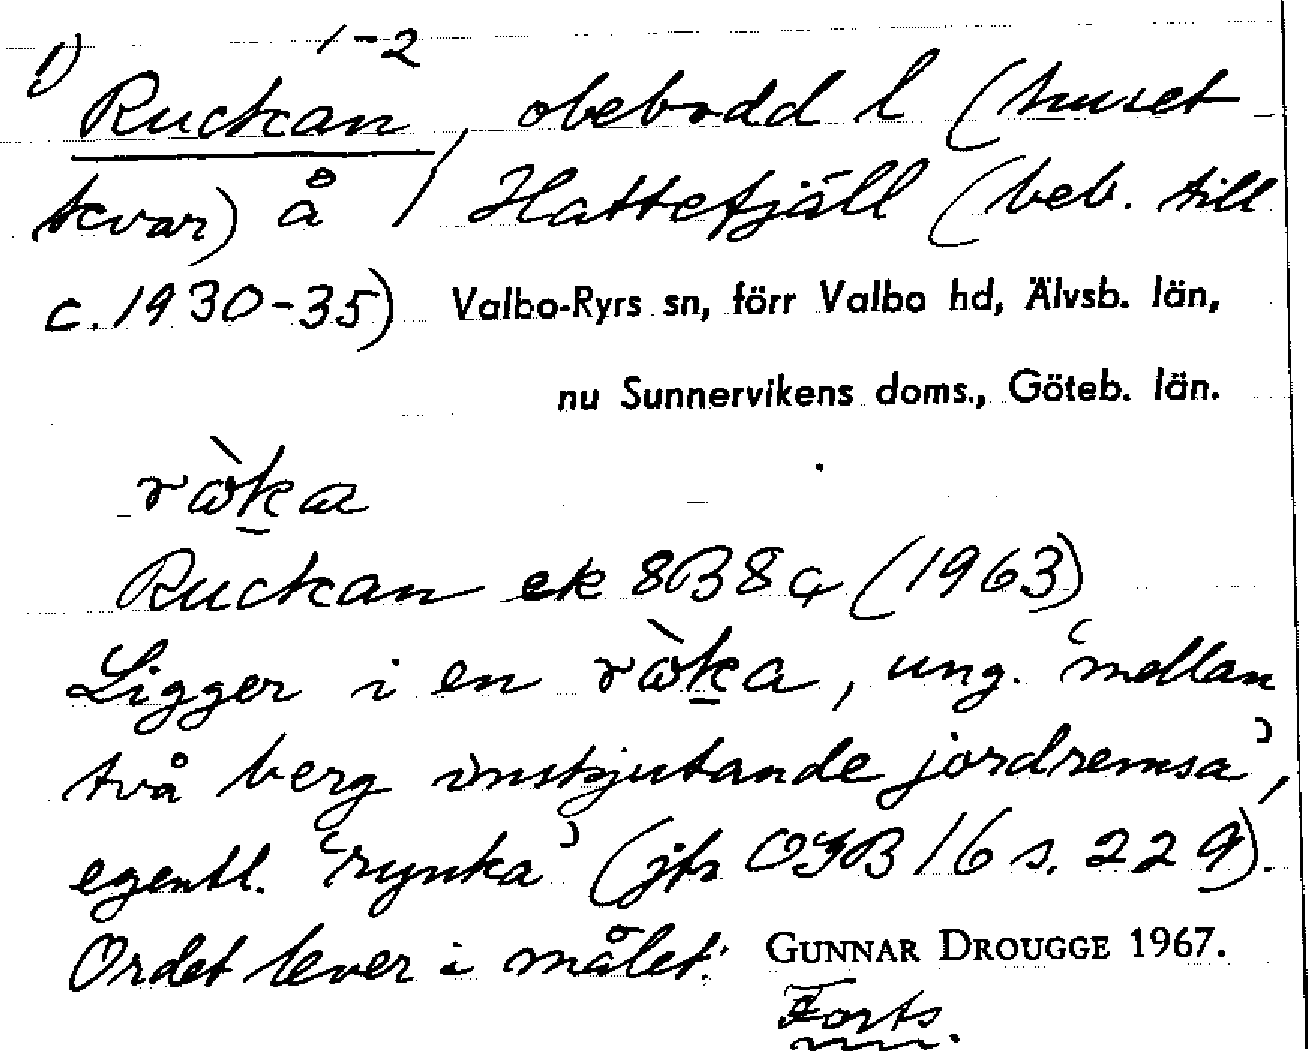 1) 1-2
Ruckan, obebodd l (huset
kvar) å / Hattefjäll (beb. till
c. 1930-35) Valbo-Ryrs sn, förr Valbo hd, Älvsb. län,
nu Sunnervikens doms., Göteb. län.
ròka
Ruckan ek 8B8c (1963)
Ligger i en ròka, ung. 'mellan
två berg inskjutande jordremsa',
egentl. 'rynka' (jfr OGB 16 s. 229).
Ordet lever i målet. GUNNAR DROUGGE 1967.
Forts.